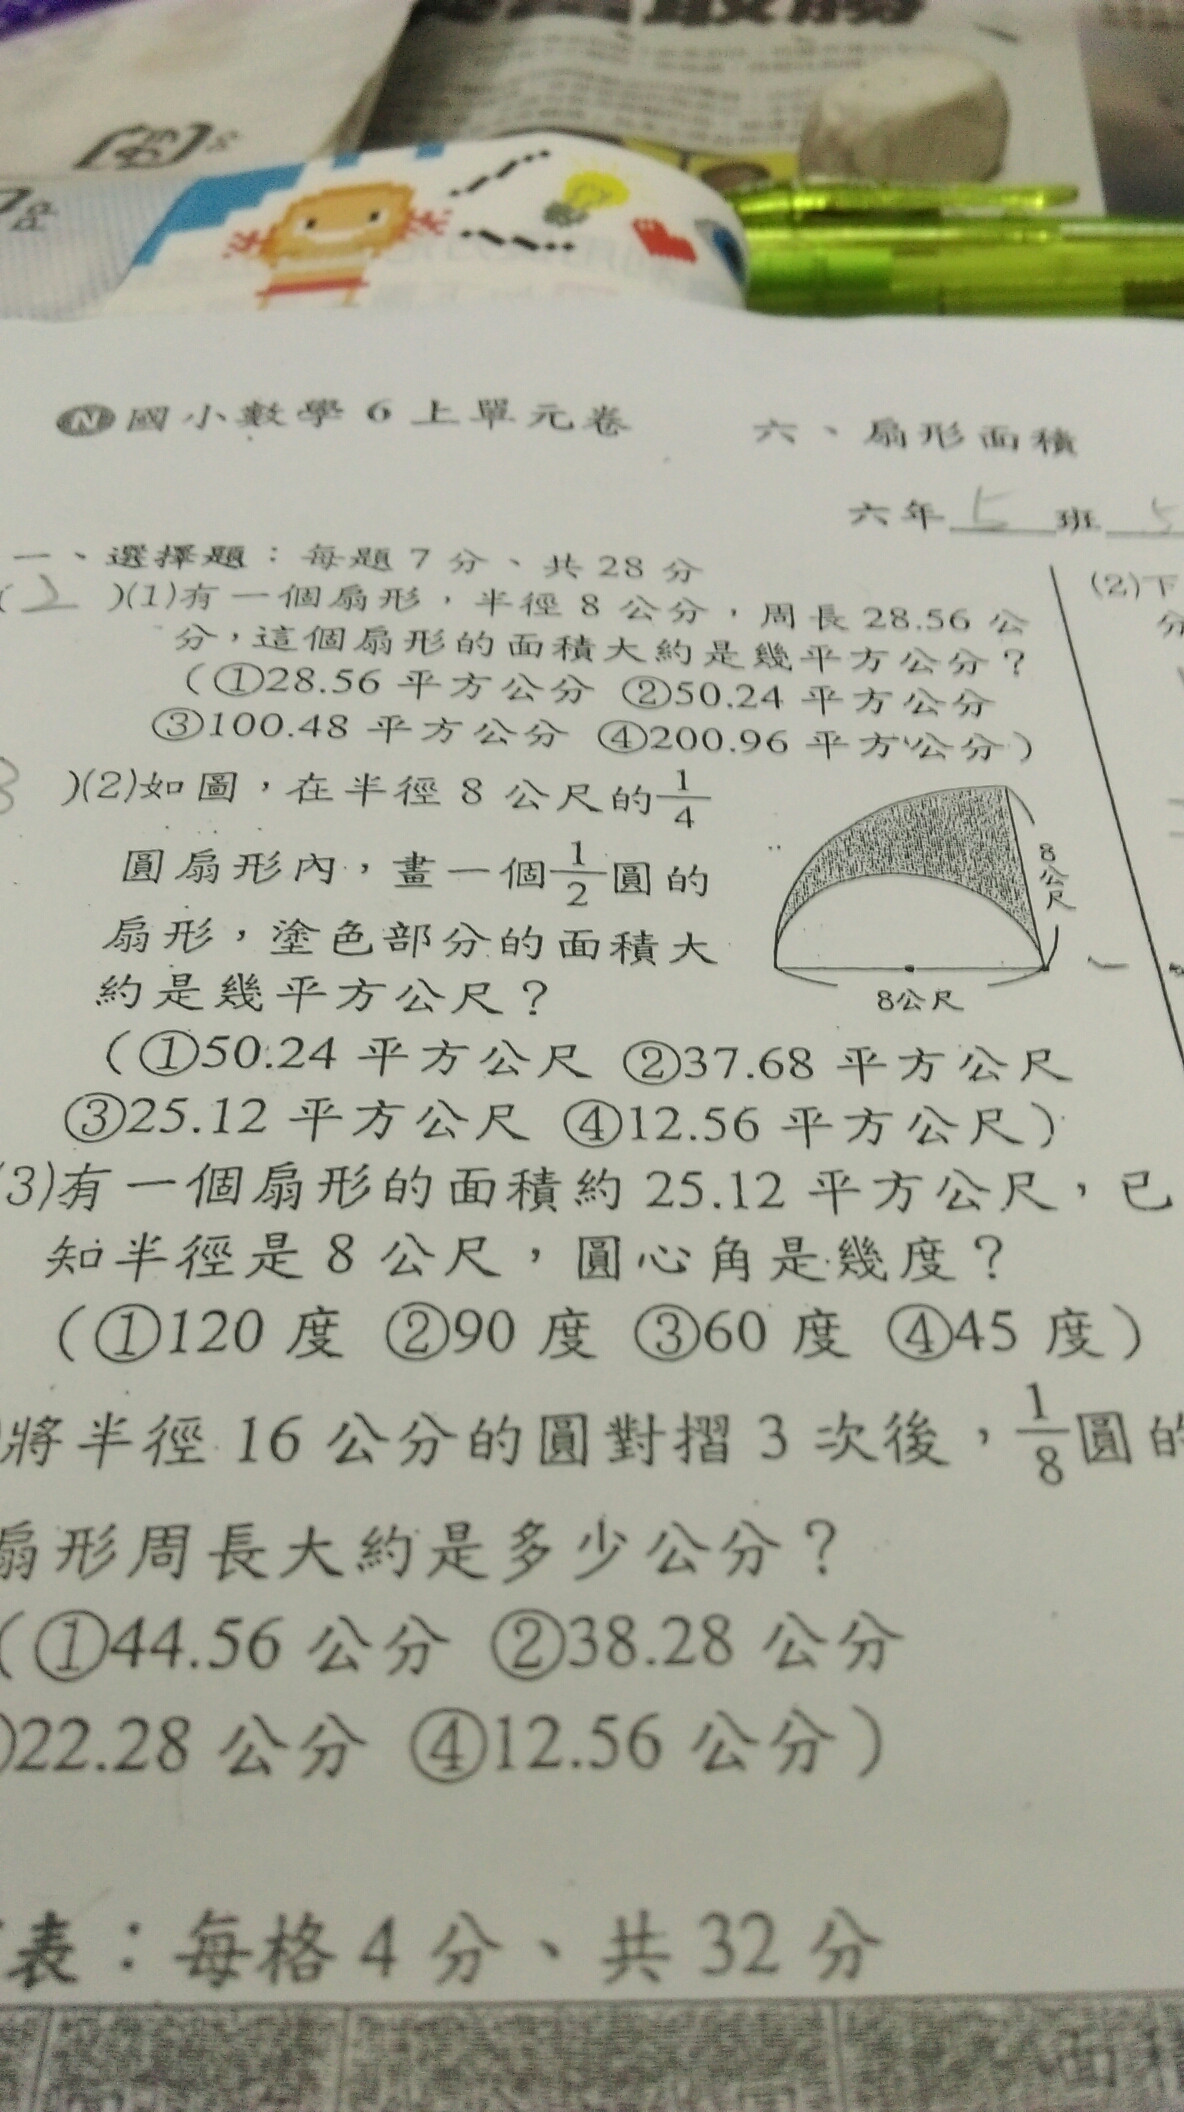 N 國小數學6上單元卷
六、扇形面積
六年 5 班 5
一、選擇題：每題7分、共28分
( 2 )(1)有一個扇形，半徑8公分，周長28.56公
分，這個扇形的面積大約是幾平方公分？
(①28.56平方公分 ②50.24平方公分
③100.48平方公分 ④200.96平方公分)
3 )(2)如圖，在半徑8公尺的1/4
圓扇形內，畫一個1/2圓的
扇形，塗色部分的面積大
約是幾平方公尺？
8公尺
8公尺
(①50.24平方公尺 ②37.68平方公尺
③25.12平方公尺 ④12.56平方公尺)
(3)有一個扇形的面積約25.12平方公尺，已
知半徑是8公尺，圓心角是幾度？
(①120度 ②90度 ③60度 ④45度)
)將半徑16公分的圓對摺3次後，1/8圓的
扇形周長大約是多少公分？
(①44.56公分 ②38.28公分
)22.28公分 ④12.56公分)
表：每格4分、共32分
面積
(2)下
分